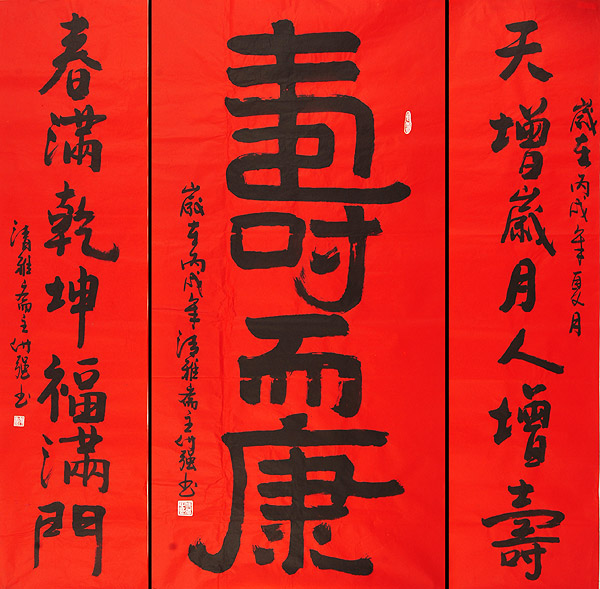 天增歲月人增壽
歲在丙戌年夏月
壽而康
歲在丙戌年清雅齋主强书
春滿乾坤福滿門
清雅齋主强书